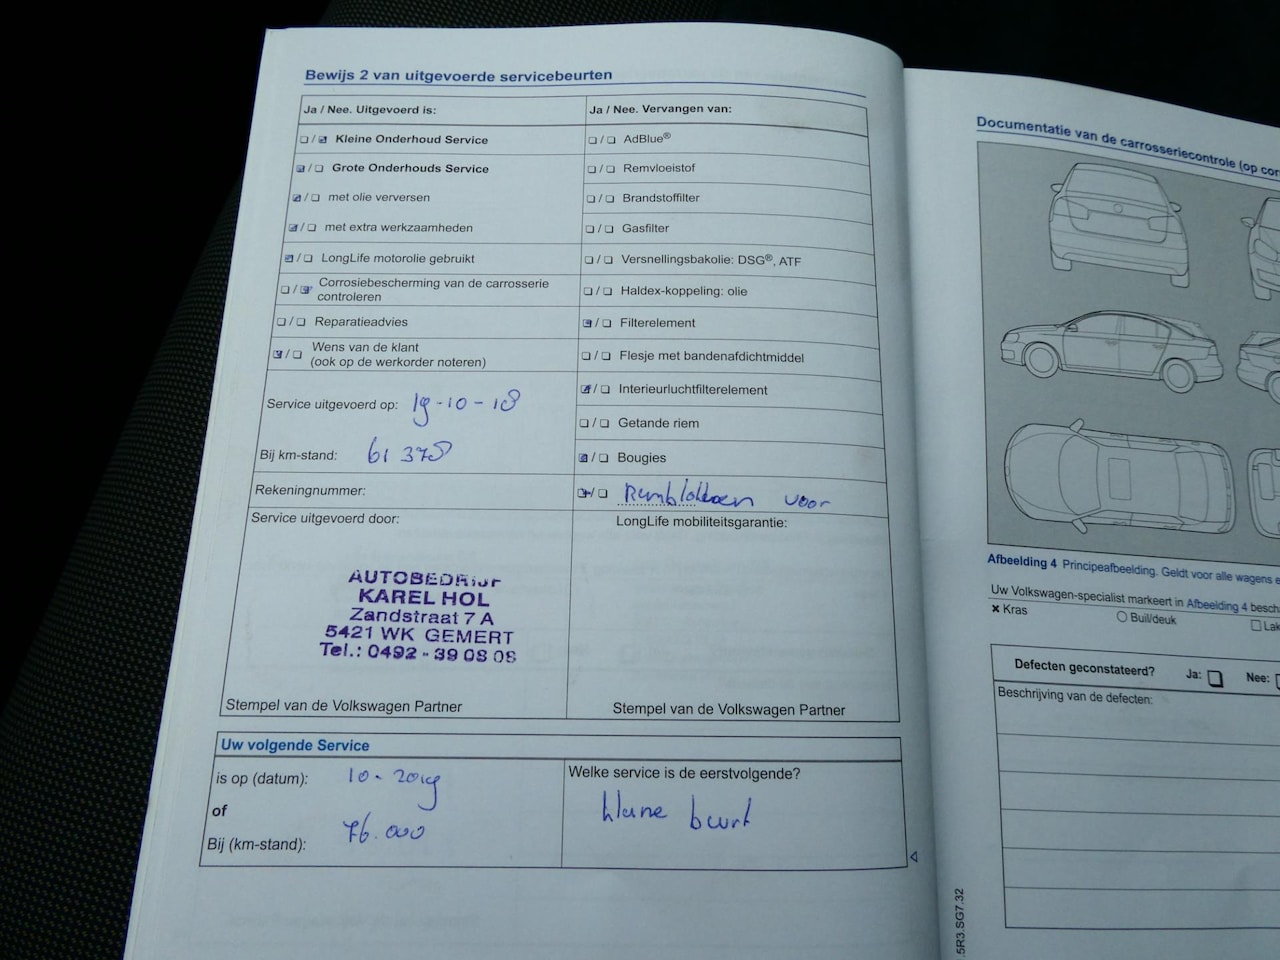 Bewijs 2 van uitgevoerde servicebeurten
Ja / Nee. Uitgevoerd is:
Kleine Onderhoud Service
Grote Onderhouds Service
met olie verversen
met extra werkzaamheden
LongLife motorolie gebruikt
Corrosiebescherming van de carrosserie
controleren
Reparatieadvies
Wens van de klant
(ook op de werkorder noteren)
Service uitgevoerd op: 19-10-18
Bij km-stand: 61 378
Rekeningnummer:
Service uitgevoerd door:
AUTOBEDRIJF
KAREL HOL
Zandstraat 7 A
5421 WK GEMERT
Tel.: 0492 - 39 08 08
Stempel van de Volkswagen Partner
Ja / Nee. Vervangen van:
AdBlue®
Remvloeistof
Brandstoffilter
Gasfilter
Versnellingsbakolie: DSG®, ATF
Haldex-koppeling: olie
Filterelement
Flesje met bandenafdichtmiddel
Interieurluchtfilterelement
Getande riem
Bougies
Remblokken voor
LongLife mobiliteitsgarantie:
Stempel van de Volkswagen Partner
Uw volgende Service
is op (datum): 10-2019
of
Bij (km-stand): 76.000
Welke service is de eerstvolgende?
kleine beurt
Documentatie van de carrosseriecontrole (op
Afbeelding 4 Principeafbeelding. Geldt voor alle wagens
Uw Volkswagen-specialist markeert in Afbeelding 4
× Kras
Buil/deuk
Defecten geconstateerd? Ja: Nee:
Beschrijving van de defecten:
5R3.SG7.32